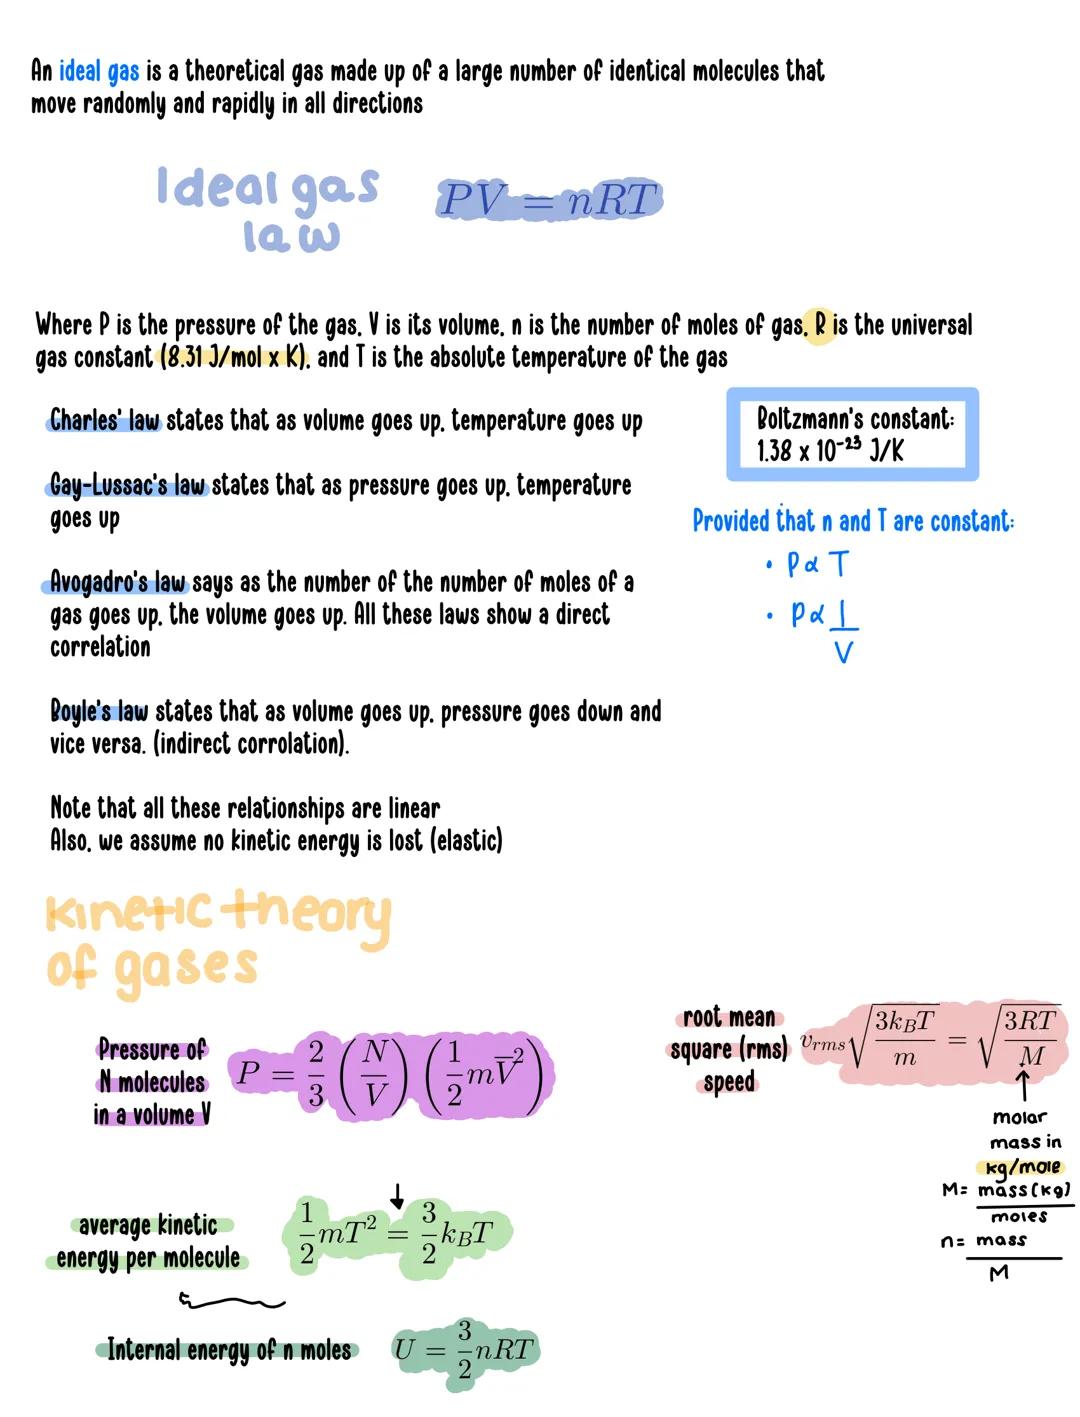 An ideal gas is a theoretical gas made up of a large number of identical molecules that
move randomly and rapidly in all directions
Ideal gas
law
PV = nRT
Where P is the pressure of the gas, V is its volume, n is the number of moles of gas, R is the universal
gas constant (8.31 J/mol x K), and T is the absolute temperature of the gas
Charles' law states that as volume goes up, temperature goes up
Gay-Lussac's law states that as pressure goes up, temperature
goes up
Avogadro's law says as the number of the number of moles of a
gas goes up, the volume goes up. All these laws show a direct
correlation
Boyle's law states that as volume goes up, pressure goes down and
vice versa. (indirect corrolation).
Note that all these relationships are linear
Also, we assume no kinetic energy is lost (elastic)
Boltzmann's constant:
1.38 x 10⁻²³ J/K
Provided that n and T are constant:
• P α T
• P α 1/V
Kinetic theory
of gases
Pressure of
N molecules
in a volume V
P = 2/3 (N/V) (1/2 mV̅²)
average kinetic
energy per molecule
1/2 mT² = 3/2 k_BT
Internal energy of n moles
U = 3/2 nRT
root mean
square (rms)
speed
v_rms √(3k_BT/m) = √(3RT/M)
molar
mass in
kg/mole
M= mass(kg)
moles
n= mass
M